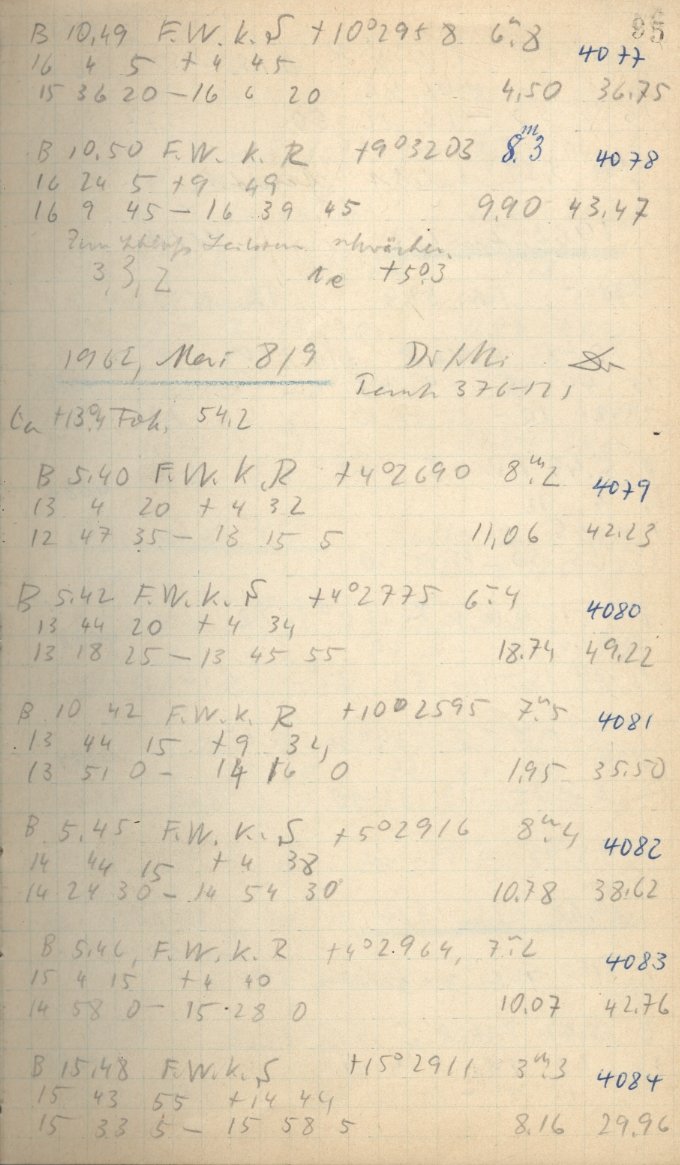 95
B 10,49 F.W.K.S +10°2958 6ᵐ.8 4077
16 4 5 +4 45
15 36 20 – 16 6 20 4,50 36.75
B 10.50 F.W.K.R +9°3203 8ᵐ.3 4078
16 24 5 +9 49
16 9 45 – 16 39 45 9.90 43.47
Zum Schluß schwächer.
3, 3, 2 +5°.3
1962, Mai 8/9
Temp. 376-121
Ca +13°.4 Fok. 54,2
B 5.40 F.W.K.R +4°2690 8ᵐ.2 4079
13 4 20 +4 32
12 47 35 – 13 15 5 11,06 42.23
B 5.42 F.W.K.S +4°2775 6ᵐ.4 4080
13 44 20 +4 34
13 18 25 – 13 45 55 18.74 49.22
B 10 42 F.W.K.R +10°2595 7ᵐ.5 4081
13 44 15 +9 34
13 51 0 – 14 16 0 1.95 35.50
B 5.45 F.W.K.S +5°2916 8ᵐ.4 4082
14 44 15 +4 38
14 24 30 – 14 54 30 10.78 38.62
B 5.46, F.W.K.R +4°2964, 7ᵐ.2 4083
15 4 15 +4 40
14 58 0 – 15 28 0 10.07 42.76
B 15,48 F.W.K.S +15°2911 3ᵐ.3 4084
15 43 55 +14 44
15 33 5 – 15 58 5 8.16 29.96